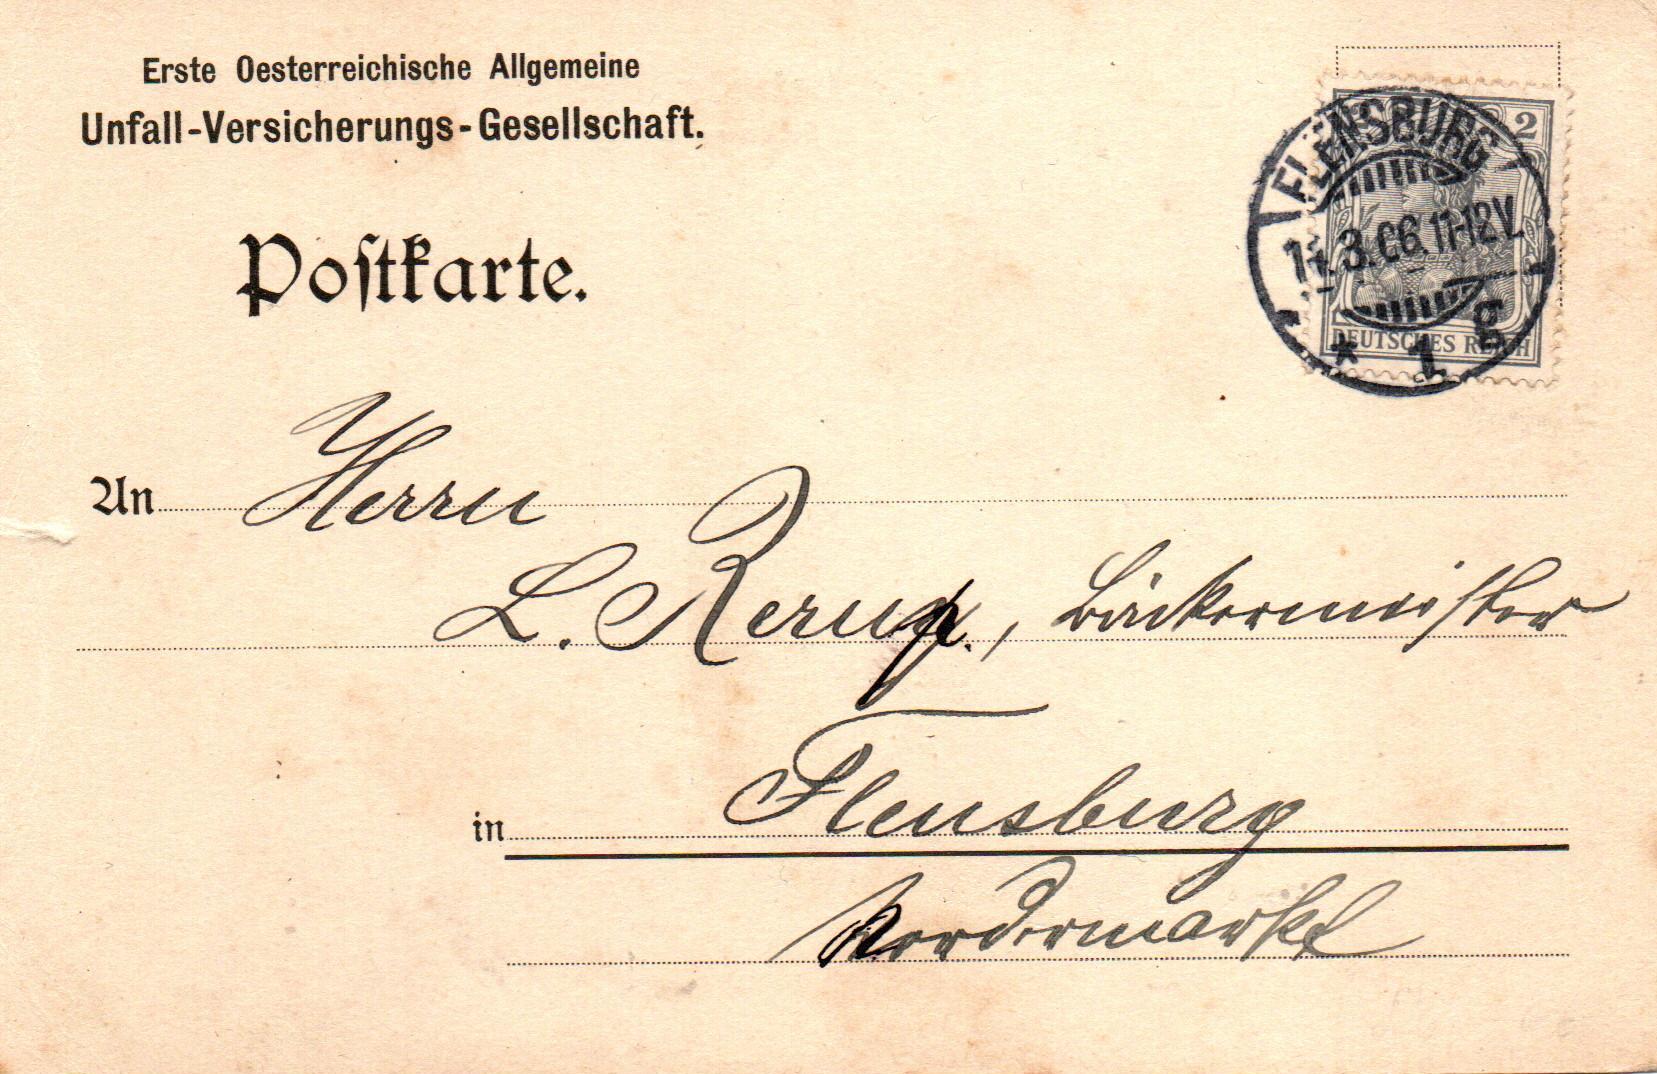 Erste Oesterreichische Allgemeine
Unfall-Versicherungs-Gesellschaft.
Postkarte.
2
DEUTSCHES REICH
FLENSBURG
3.06.11-12V.
* 1 g
An Herrn
L. Rerup, Bäckermeister
in Flensburg
Nordermarkt